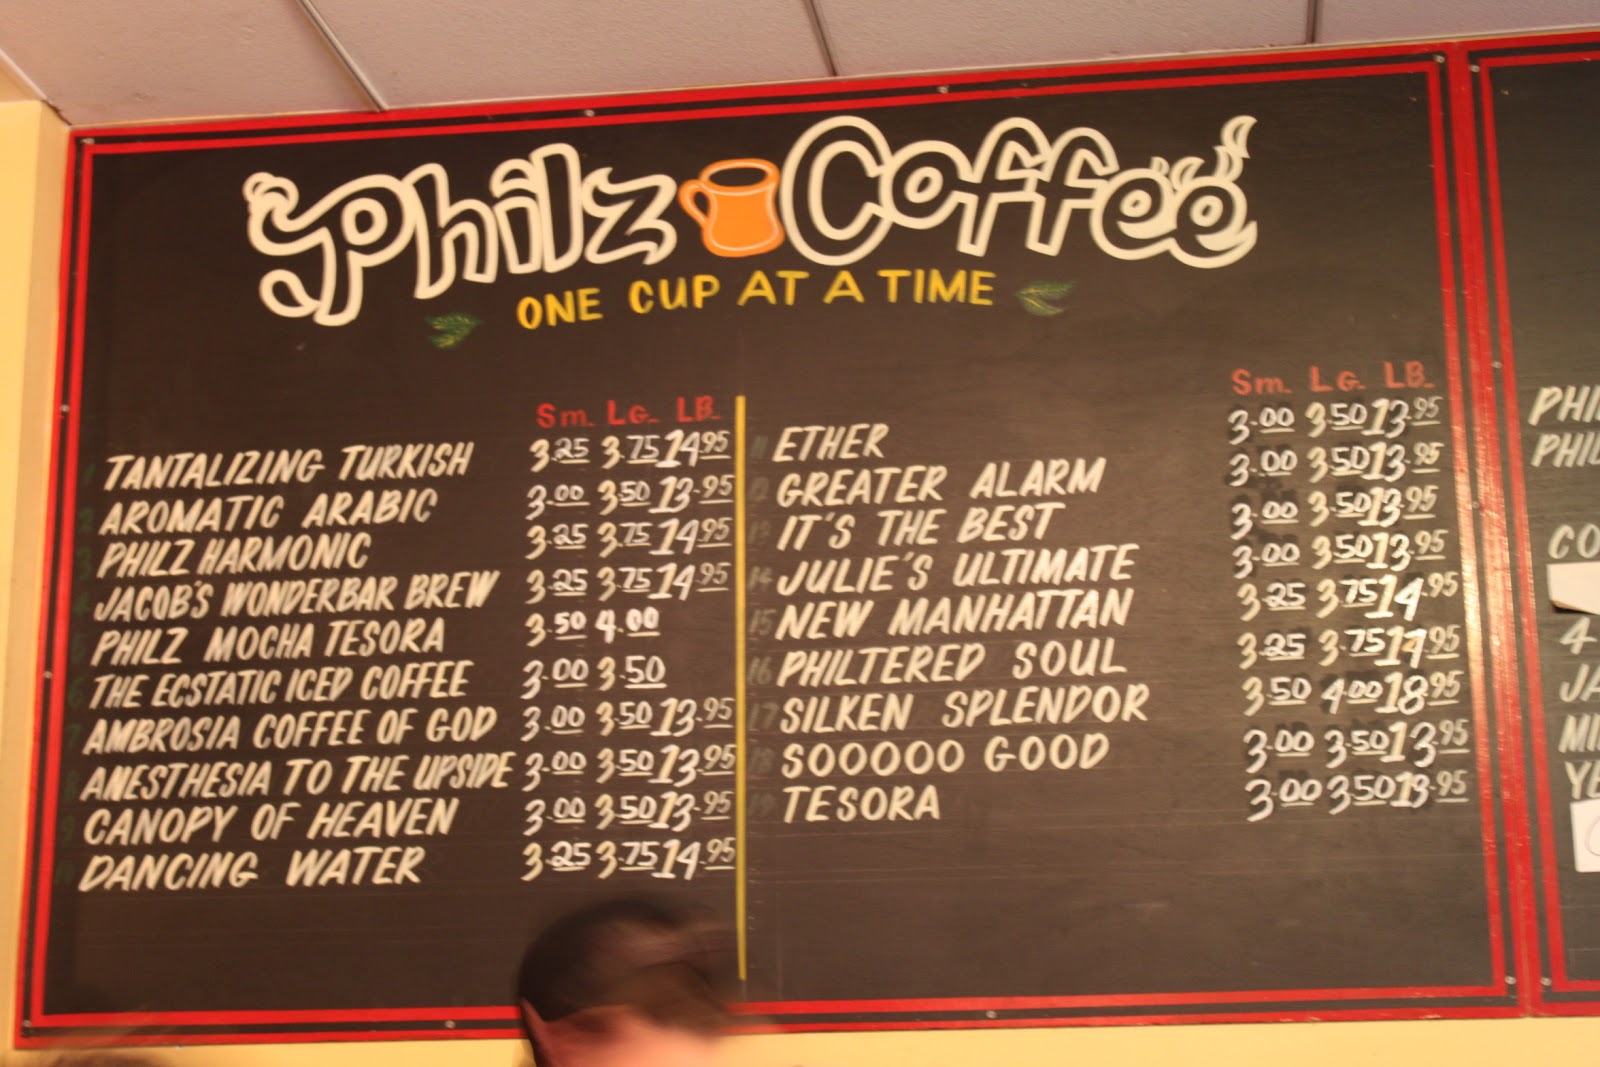 Philz Coffee
ONE CUP AT A TIME
Sm. LG. LB.
1 TANTALIZING TURKISH 3.25 3.75 14.95
2 AROMATIC ARABIC 3.00 3.50 13.95
3 PHILZ HARMONIC 3.25 3.75 14.95
4 JACOB'S WONDERBAR BREW 3.25 3.75 14.95
5 PHILZ MOCHA TESORA 3.50 4.00
6 THE ECSTATIC ICED COFFEE 3.00 3.50
7 AMBROSIA COFFEE OF GOD 3.00 3.50 13.95
8 ANESTHESIA TO THE UPSIDE 3.00 3.50 13.95
9 CANOPY OF HEAVEN 3.00 3.50 13.95
10 DANCING WATER 3.25 3.75 14.95
Sm. LG. LB.
11 ETHER 3.00 3.50 13.95
12 GREATER ALARM 3.00 3.50 13.95
13 IT'S THE BEST 3.00 3.50 13.95
14 JULIE'S ULTIMATE 3.00 3.50 13.95
15 NEW MANHATTAN 3.25 3.75 14.95
16 PHILTERED SOUL 3.25 3.75 14.95
17 SILKEN SPLENDOR 3.50 4.00 18.95
18 SOOOOO GOOD 3.00 3.50 13.95
19 TESORA 3.00 3.50 13.95
PHI
PHIL
CO
4
JA
MI
YE